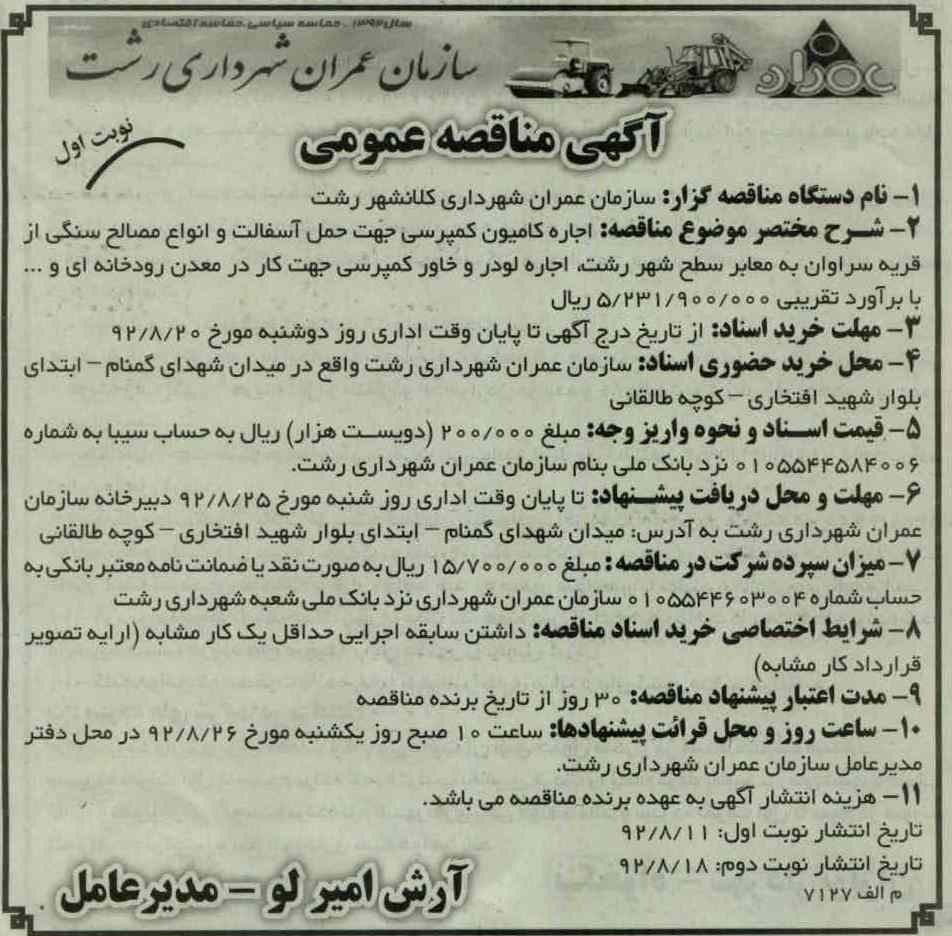 سال ۱۳۹۲ - حماسه سیاسی حماسه اقتصادی
عمران
سازمان عمران شهرداری رشت
آگهی مناقصه عمومی
نوبت اول
۱- نام دستگاه مناقصه گزار: سازمان عمران شهرداری کلانشهر رشت
۲- شرح مختصر موضوع مناقصه: اجاره کامیون کمپرسی جهت حمل آسفالت و انواع مصالح سنگی از
قریه سراوان به معابر سطح شهر رشت، اجاره لودر و خاور کمپرسی جهت کار در معدن رودخانه ای و ...
با برآورد تقریبی ۵/۲۳۱/۹۰۰/۰۰۰ ریال
۳- مهلت خرید اسناد: از تاریخ درج آگهی تا پایان وقت اداری روز دوشنبه مورخ ۹۲/۸/۲۰
۴- محل خرید حضوری اسناد: سازمان عمران شهرداری رشت واقع در میدان شهدای گمنام – ابتدای
بلوار شهید افتخاری – کوچه طالقانی
۵- قیمت اسناد و نحوه واریز وجه: مبلغ ۲۰۰/۰۰۰ (دویست هزار) ریال به حساب سیبا به شماره
۰۱۰۵۵۴۴۵۸۴۰۰۶ نزد بانک ملی بنام سازمان عمران شهرداری رشت.
۶- مهلت و محل دریافت پیشنهاد: تا پایان وقت اداری روز شنبه مورخ ۹۲/۸/۲۵ دبیرخانه سازمان
عمران شهرداری رشت به آدرس: میدان شهدای گمنام – ابتدای بلوار شهید افتخاری – کوچه طالقانی
۷- میزان سپرده شرکت در مناقصه: مبلغ ۱۵/۷۰۰/۰۰۰ ریال به صورت نقد یا ضمانت نامه معتبر بانکی به
حساب شماره ۰۱۰۵۵۴۴۶۰۳۰۰۴ سازمان عمران شهرداری نزد بانک ملی شعبه شهرداری رشت
۸- شرایط اختصاصی خرید اسناد مناقصه: داشتن سابقه اجرایی حداقل یک کار مشابه (ارایه تصویر
قرارداد کار مشابه)
۹- مدت اعتبار پیشنهاد مناقصه: ۳۰ روز از تاریخ برنده مناقصه
۱۰- ساعت روز و محل قرائت پیشنهادها: ساعت ۱۰ صبح روز یکشنبه مورخ ۹۲/۸/۲۶ در محل دفتر
مدیرعامل سازمان عمران شهرداری رشت.
۱۱- هزینه انتشار آگهی به عهده برنده مناقصه می باشد.
تاریخ انتشار نوبت اول: ۹۲/۸/۱۱
تاریخ انتشار نوبت دوم: ۹۲/۸/۱۸
م الف ۷۱۲۷
آرش امیر لو – مدیرعامل